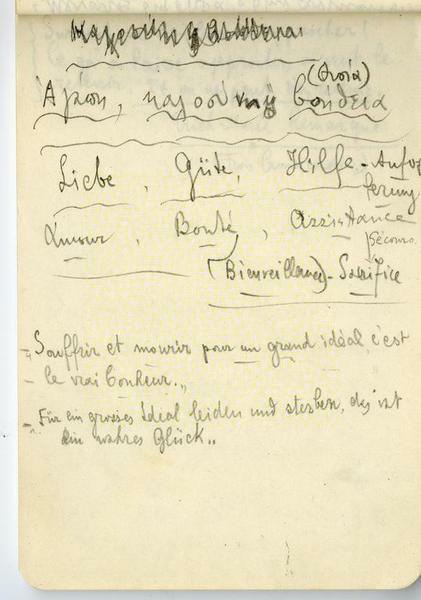 (θυσία)
Ἀγάπη, καλοσύνη βοήθεια
Liebe, Güte, Hilfe - Aufop
ferung
Amour, Bonté, Assistance
Sécours
(Bienveillance) - Sacrifice
- Souffrir et mourir pour un grand idéal, c'est
- le vrai bonheur.,,
- Für ein grosses Ideal leiden und sterben, das ist
ein wahres Glück..